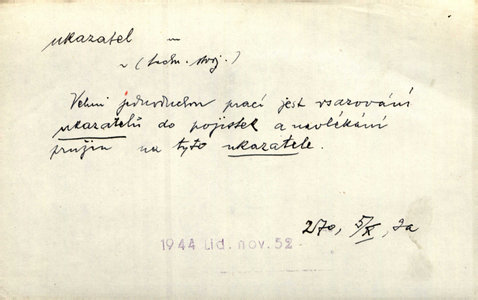 ukazatel m
~ (techn. stroj.)
Velmi jednoduchou prací jest vsazování
ukazatelů do pojistek a navlékání
pružin na tyto ukazatele.
270, 5/X, 2a
1944 Lid. nov. 52